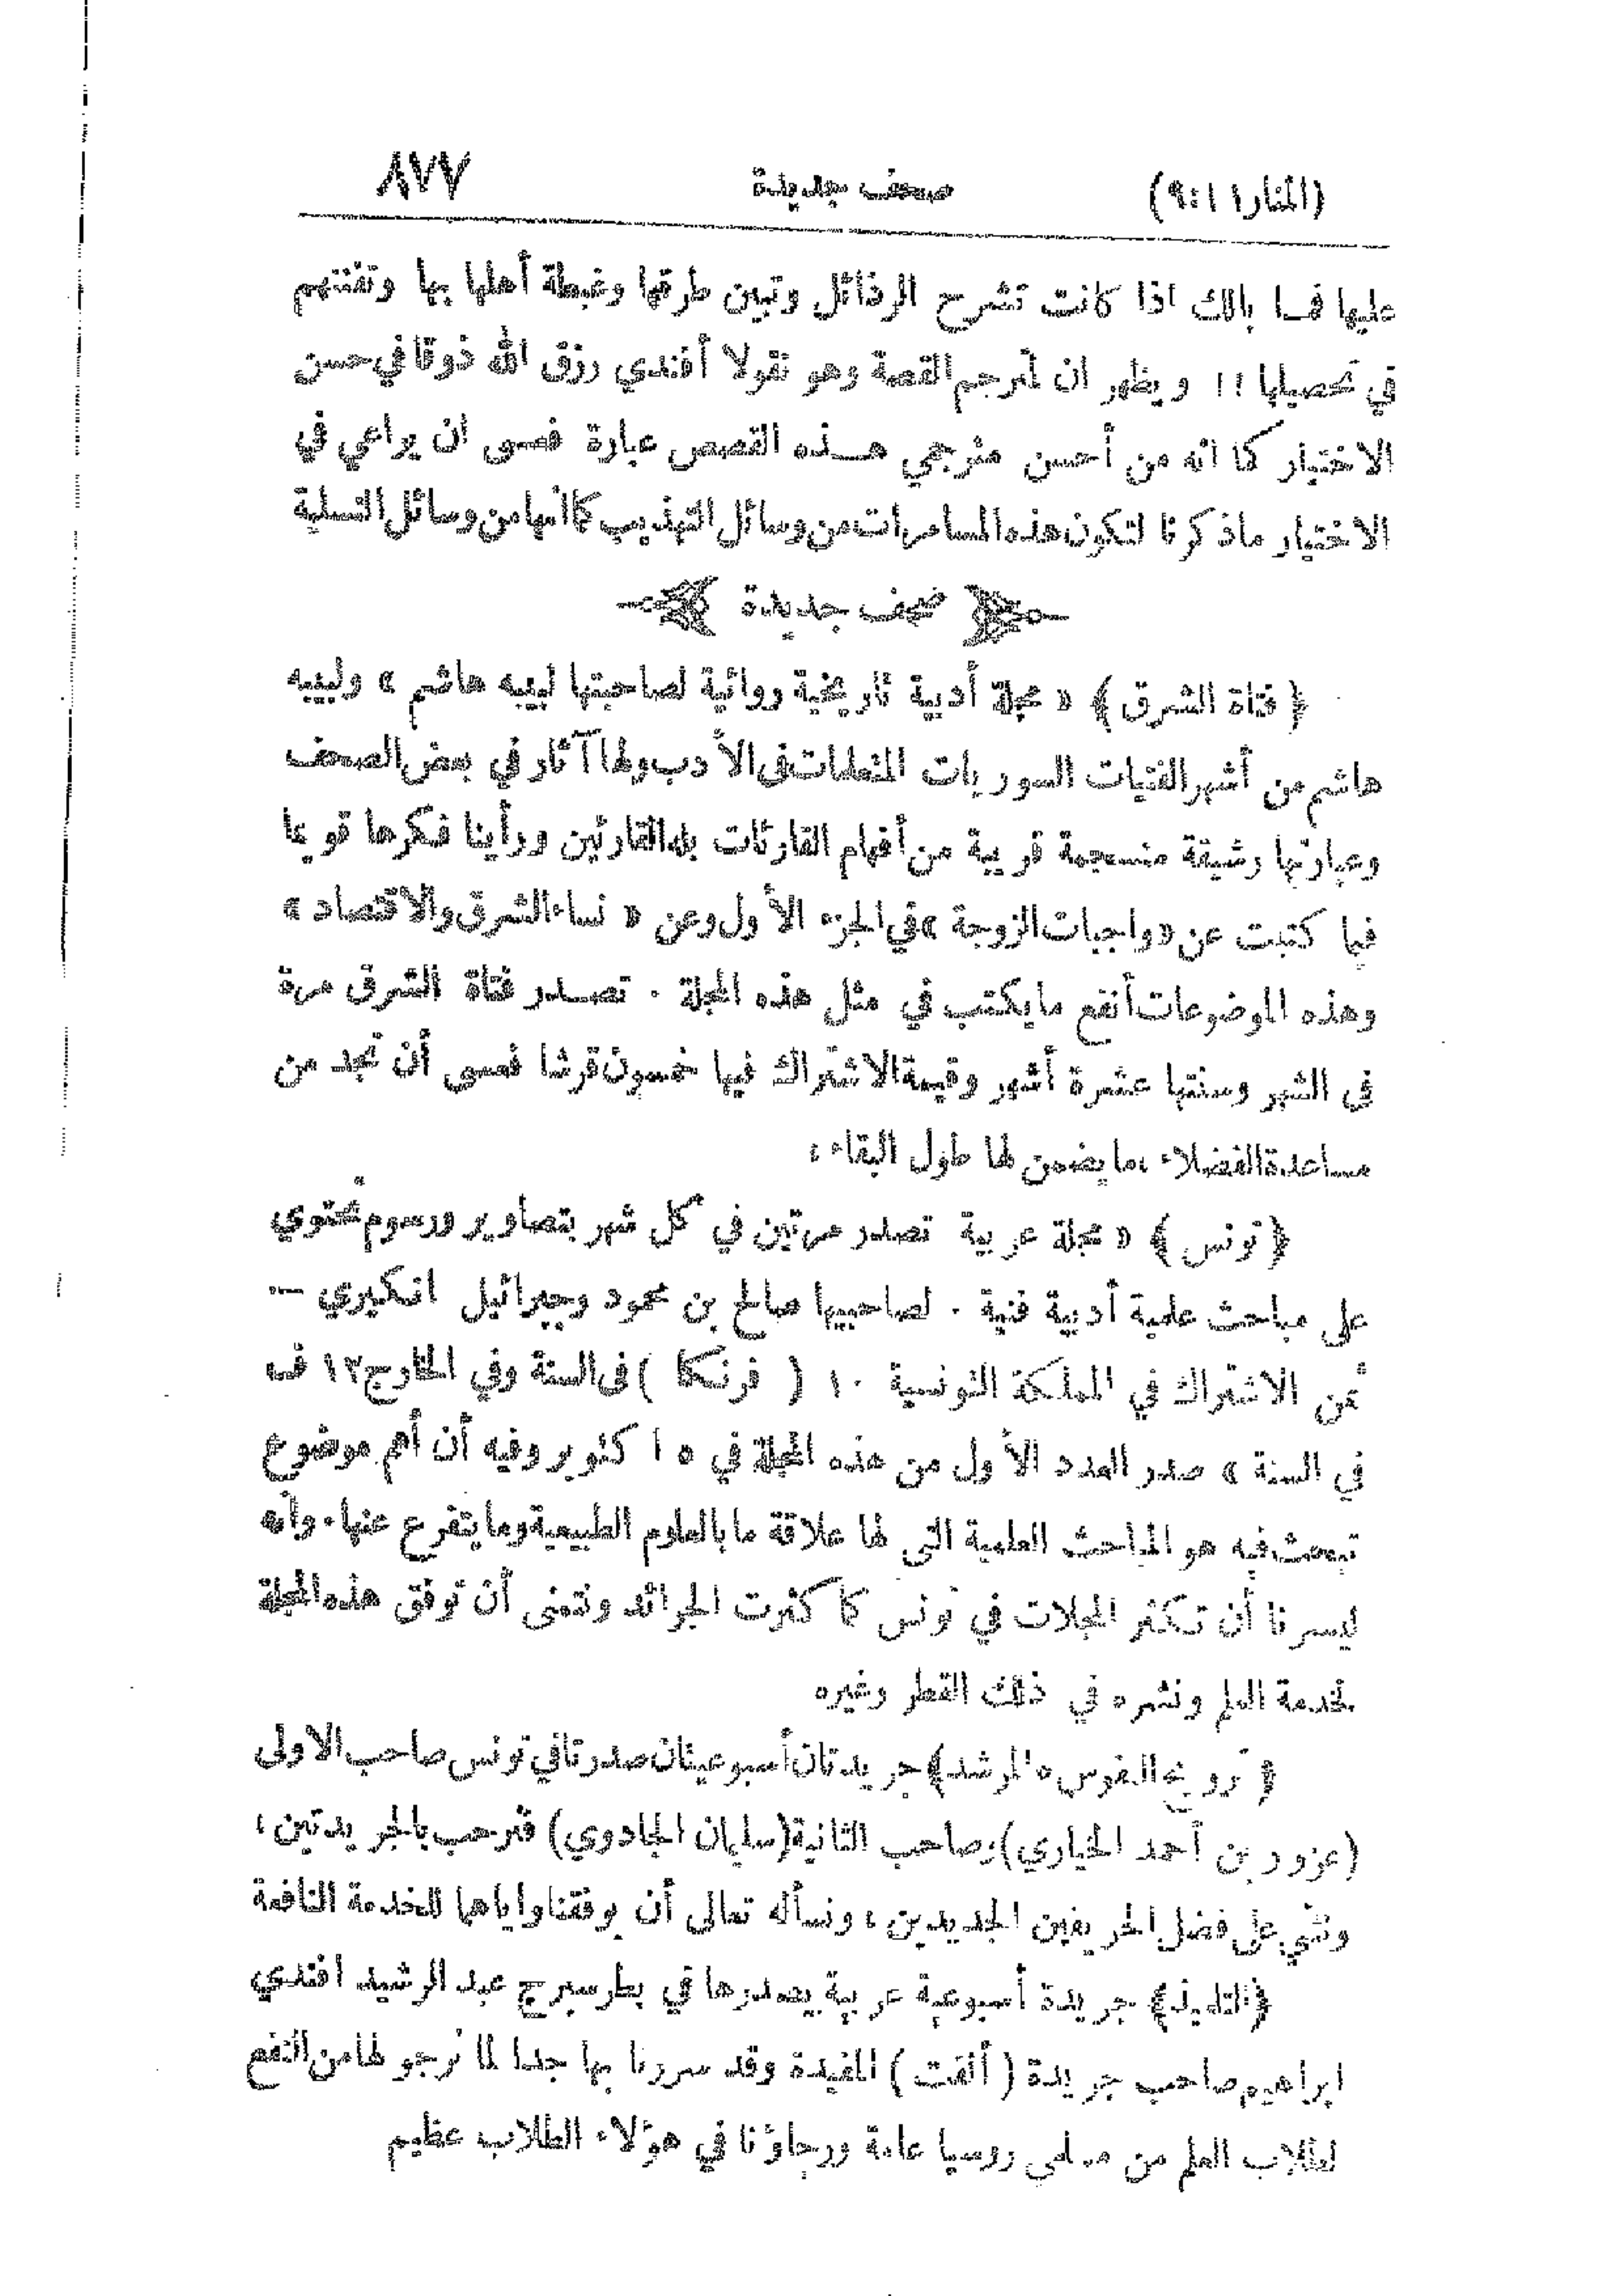 (المنار ١١:٩) صحف جديدة ٨٧٧
عليها فما بالك اذا كانت تشرح الرذائل وتبين طرقها وغبطة أهلها بها وتفننهم
في تحصيلها !! ويظهر ان لمترجم القصة وهو نقولا أفندي رزق الله ذوقا في حسن
الاختيار كما انه من أحسن مترجمي هذه القصص عبارة فعسى ان يراعي في
الاختيار ماذكرنا لتكون هذه المسامرات من وسائل التهذيب كما أنها من وسائل التسلية
صحف جديدة
﴿ فتاة الشرق ﴾ « مجلة أدبية تاريخية روائية لصاحبتها لبيبه هاشم » ولبيبه
هاشم من أشهر الفتيات السوريات المتعلمات في الأدب ولها آثار في بعض الصحف
وعبارتها رشيقة منسجمة قريبة من أفهام القارئات بله القارئين ورأينا فكرها قويما
فيما كتبت عن « واجبات الزوجة » في الجزء الأول وعن « نساء الشرق والاقتصاد »
وهذه الموضوعات أنفع مايكتب في مثل هذه المجلة . تصدر فتاة الشرق مرة
في الشهر وسنتها عشرة أشهر وقيمة الاشتراك فيها خمسون قرشا فعسى أن تجد من
مساعدة الفضلاء مايضمن لها طول البقاء ،
﴿ تونس ﴾ « مجلة عربية تصدر مرتين في كل شهر بتصاوير ورسوم تحتوي
على مباحث علمية أدبية فنية . لصاحبيها صالح بن محمود وجبرائيل انكيري —
ثمن الاشتراك في المملكة التونسية ١٠ ( فرنكا ) في السنة وفي الخارج ١٢ ف
في السنة » صدر العدد الأول من هذه المجلة في ٥ اكتوبر وفيه أن أهم موضوع
تبحث فيه هو المباحث العلمية التي لها علاقة ما بالعلوم الطبيعية وما يتفرع عنها. وانه
ليسرنا أن تكثر المجلات في تونس كما كثرت الجرائد ونتمنى أن توفق هذه المجلة
لخدمة العلم ونشره في ذلك القطر وغيره
﴿ ترويح النفوس والمرشد ﴾ جريدتان أسبوعيتان صدرتا في تونس صاحب الاولى
(عزوز بن أحمد الخياري) وصاحب الثانية (سليمان الجادوي) فنرحب بالجريدتين ،
ونثني على فضل الحريفين الجديدين ، ونسأله تعالى أن يوفقنا واياهما للخدمة النافعة
﴿ التلميذ ﴾ جريدة أسبوعية عربية يصدرها في بطرسبرج عبد الرشيد افندي
ابراهيم صاحب جريدة ( ألفت ) المفيدة وقد سررنا بها جدا لما نرجو لها من النفع
لطلاب العلم من مسلمي روسيا عامة ورجاؤنا في هؤلاء الطلاب عظيم